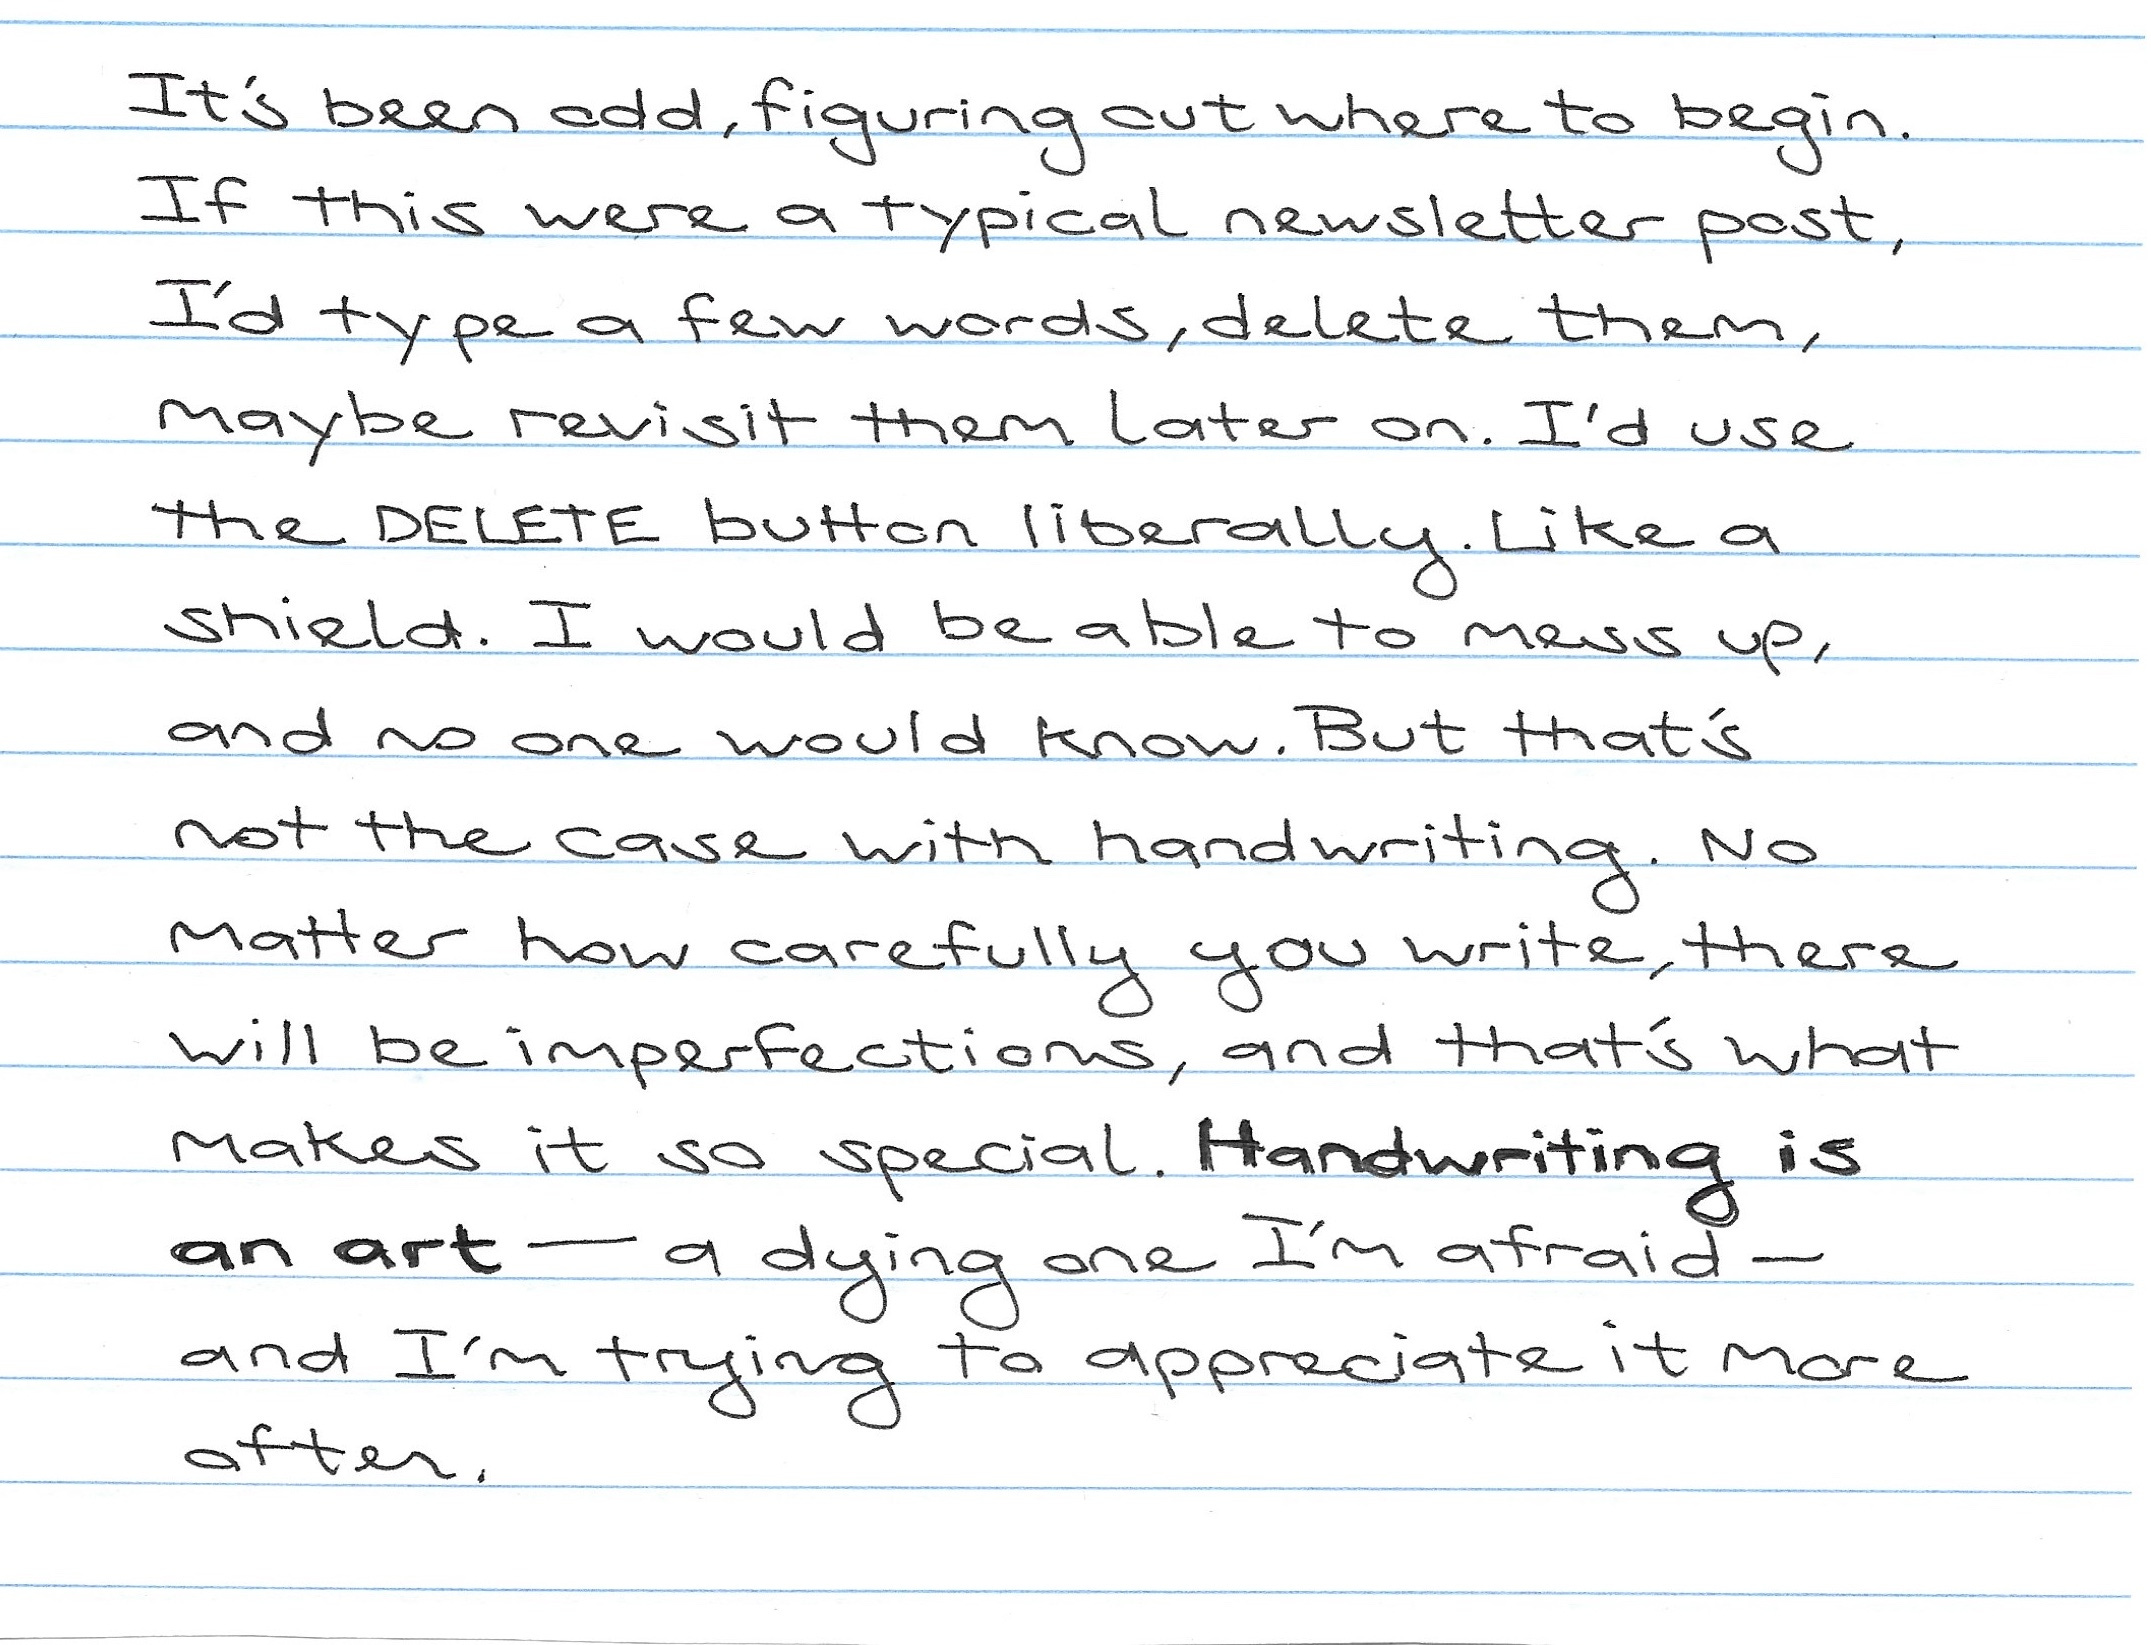 It's been odd, figuring out where to begin.
If this were a typical newsletter post,
I'd type a few words, delete them,
maybe revisit them later on. I'd use
the DELETE button liberally. Like a
shield. I would be able to mess up,
and no one would know. But that's
not the case with handwriting. No
matter how carefully you write, there
will be imperfections, and that's what
makes it so special. Handwriting is
an art — a dying one I'm afraid —
and I'm trying to appreciate it more
often.